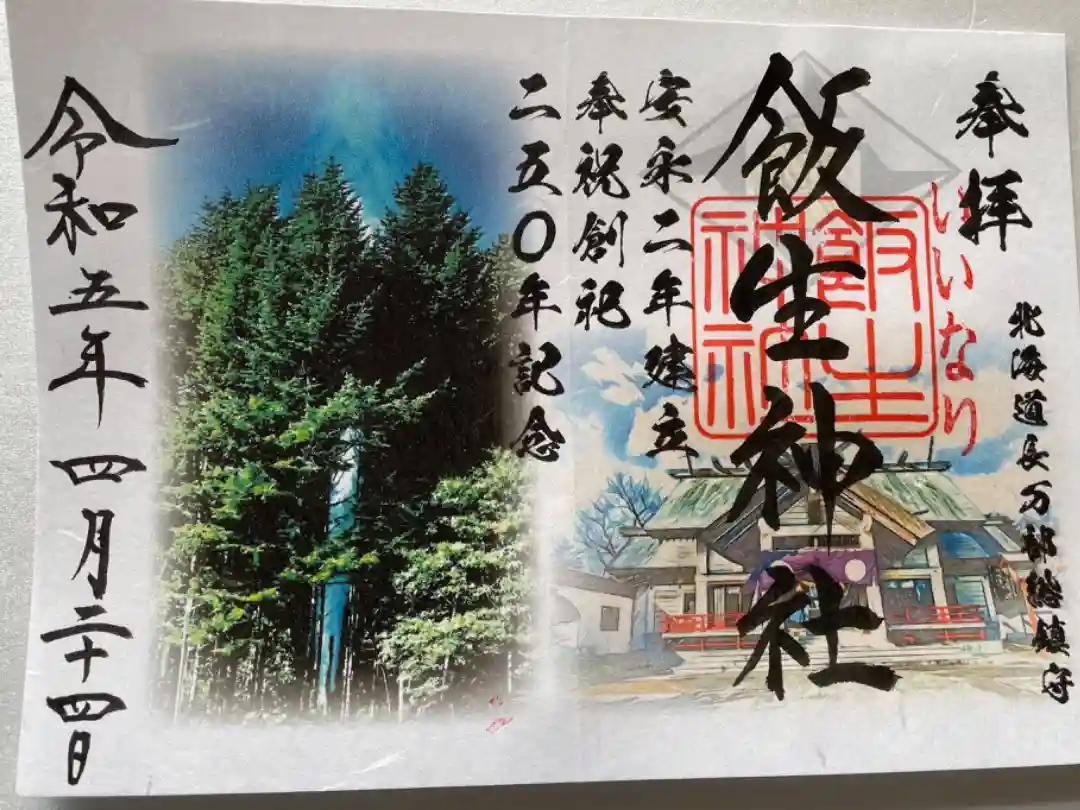 奉拝
北海道長万部総鎮守
いいなり
飯生神社
飯生神社
安永二年建立
奉祝創祀
二五〇年記念
令和五年四月二十四日